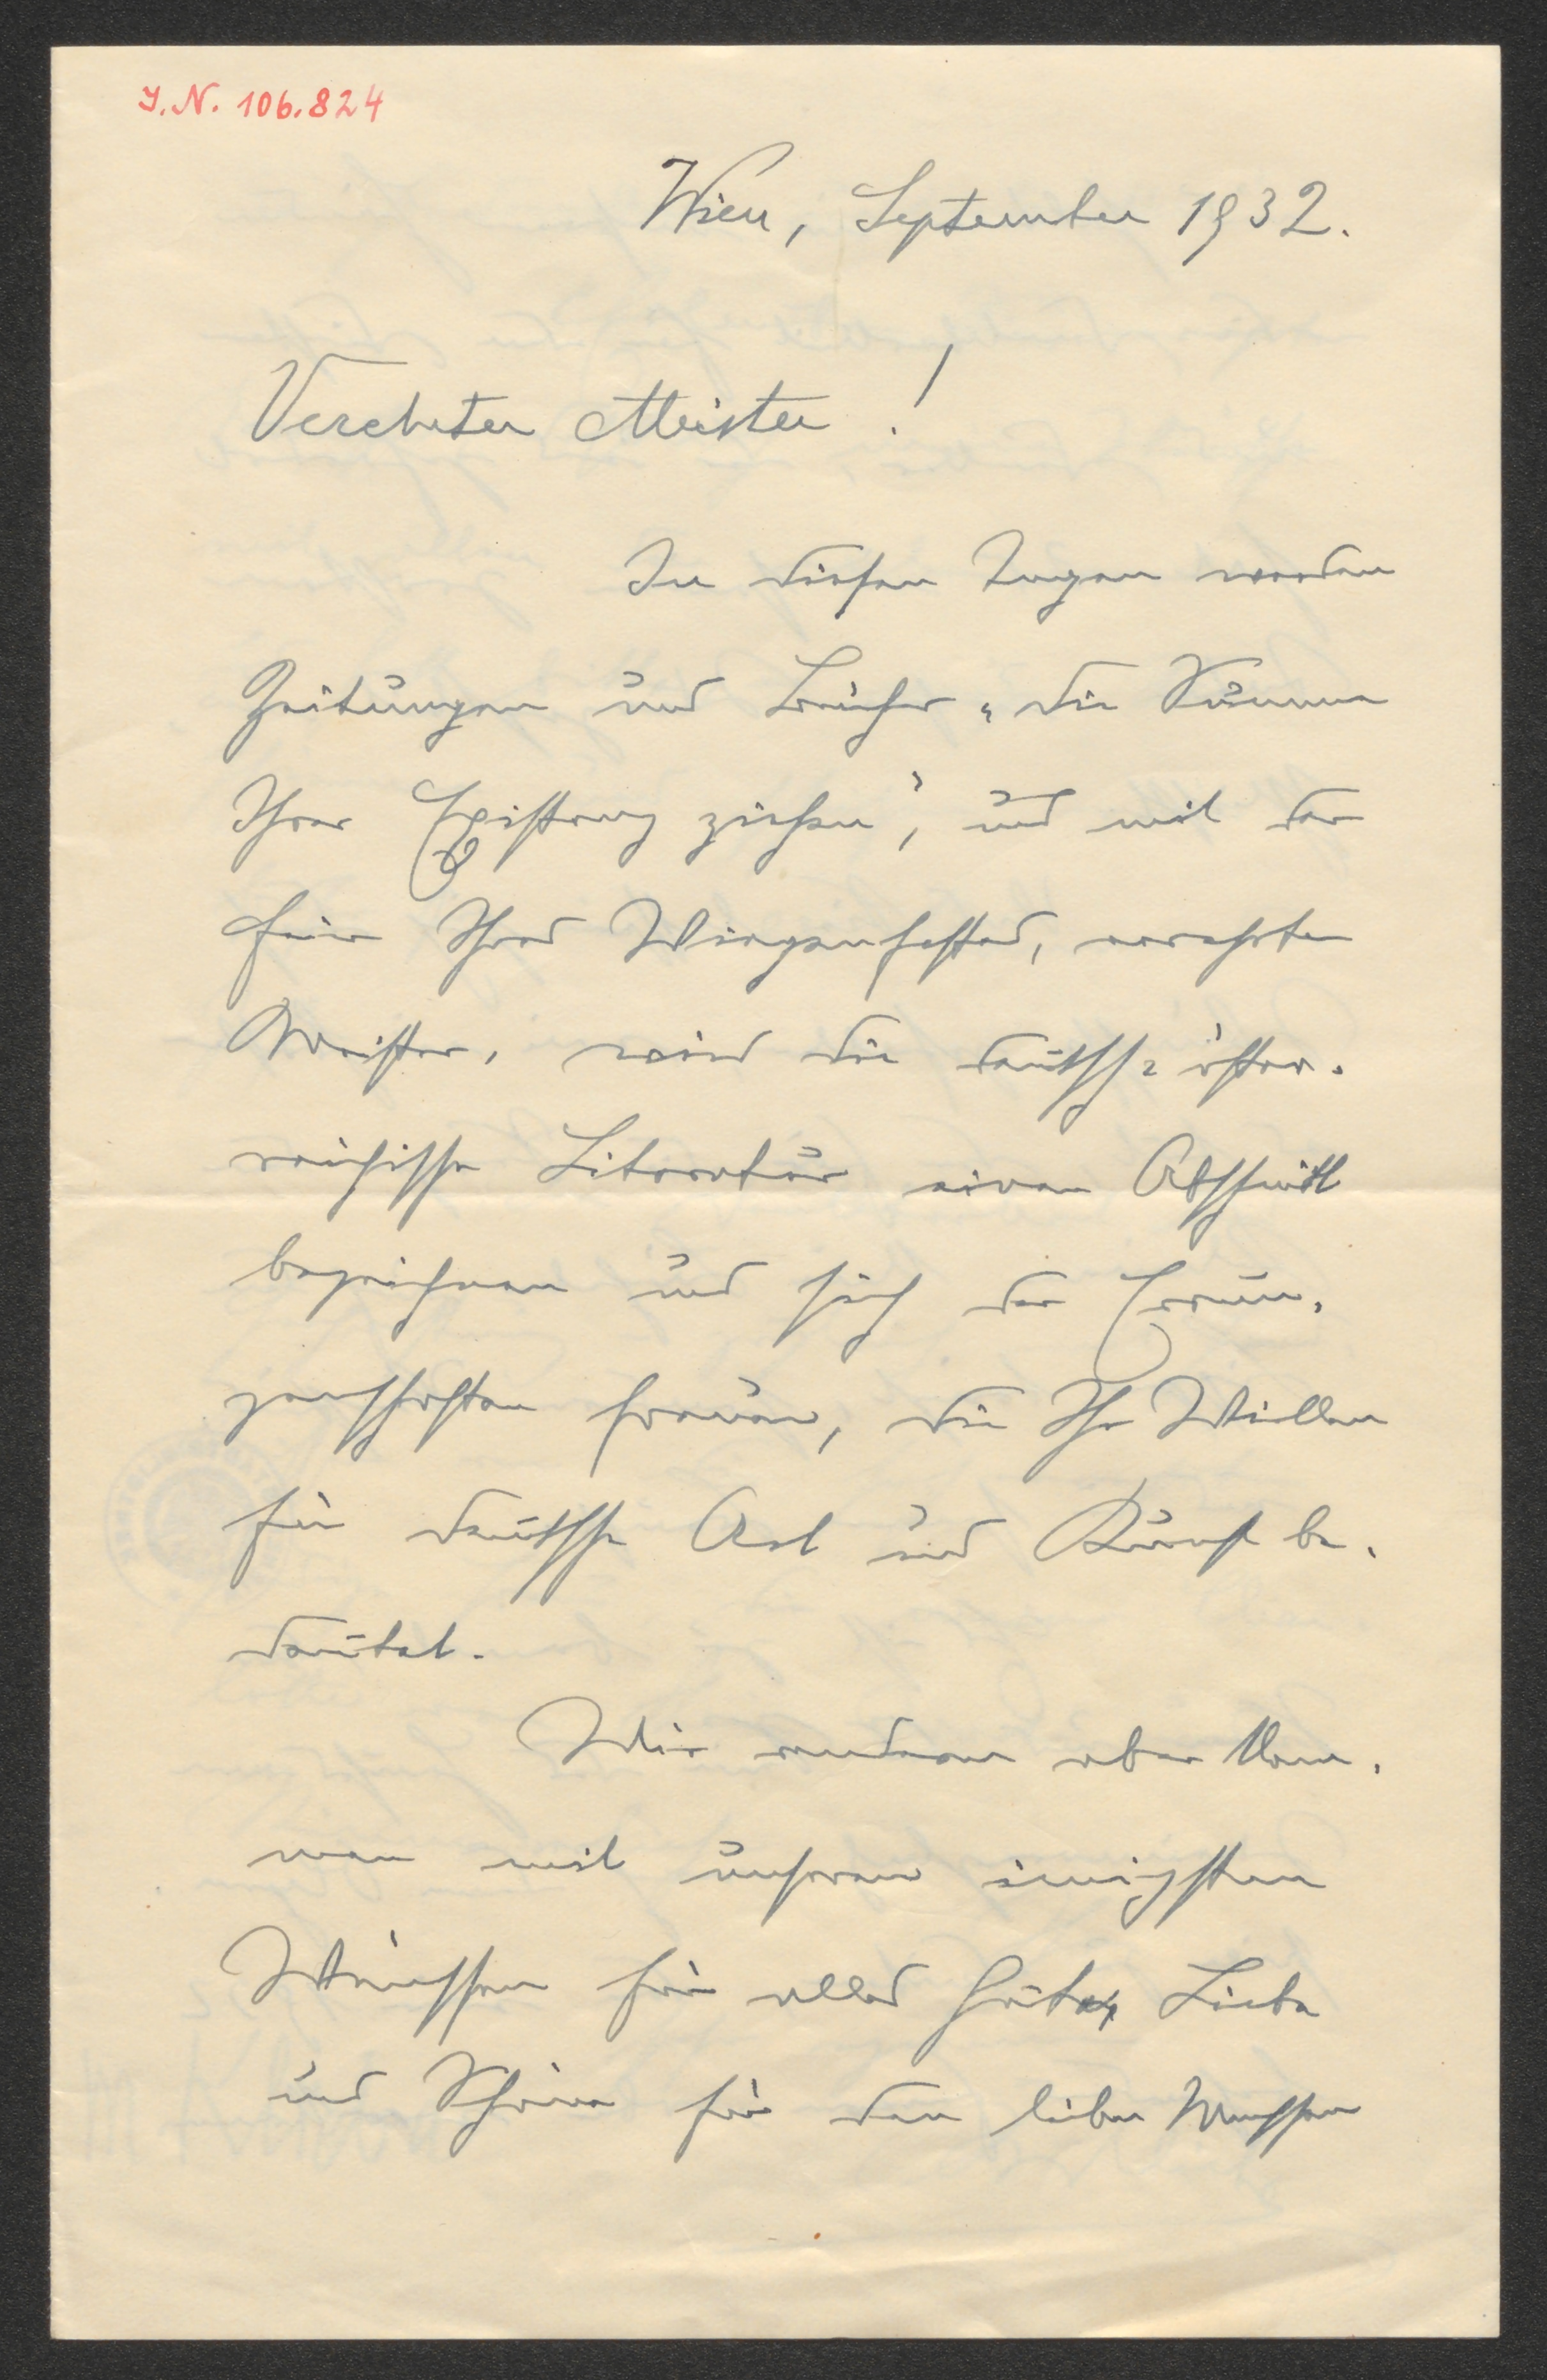 I.N. 106.824
Wien, September 1932.
Verehrter Meister!
In diesen Tagen werden
Zeitungen und Bücher „die Summe
Ihrer Existenz ziehen“, und mit der
Feier Ihres Wiegenfestes, verehrter
Meister, wird die deutsch-öster-
reichische Literatur einen Abschnitt
bezeichnen und sich der Errun-
genschaften freuen, die Ihr Willen
für deutsche Art und Kunst be-
deutet.
Wir anderen aber kom-
men mit unseren innigsten
Wünschen für alles Gute, Liebe
und Schöne für den lieben Menschen